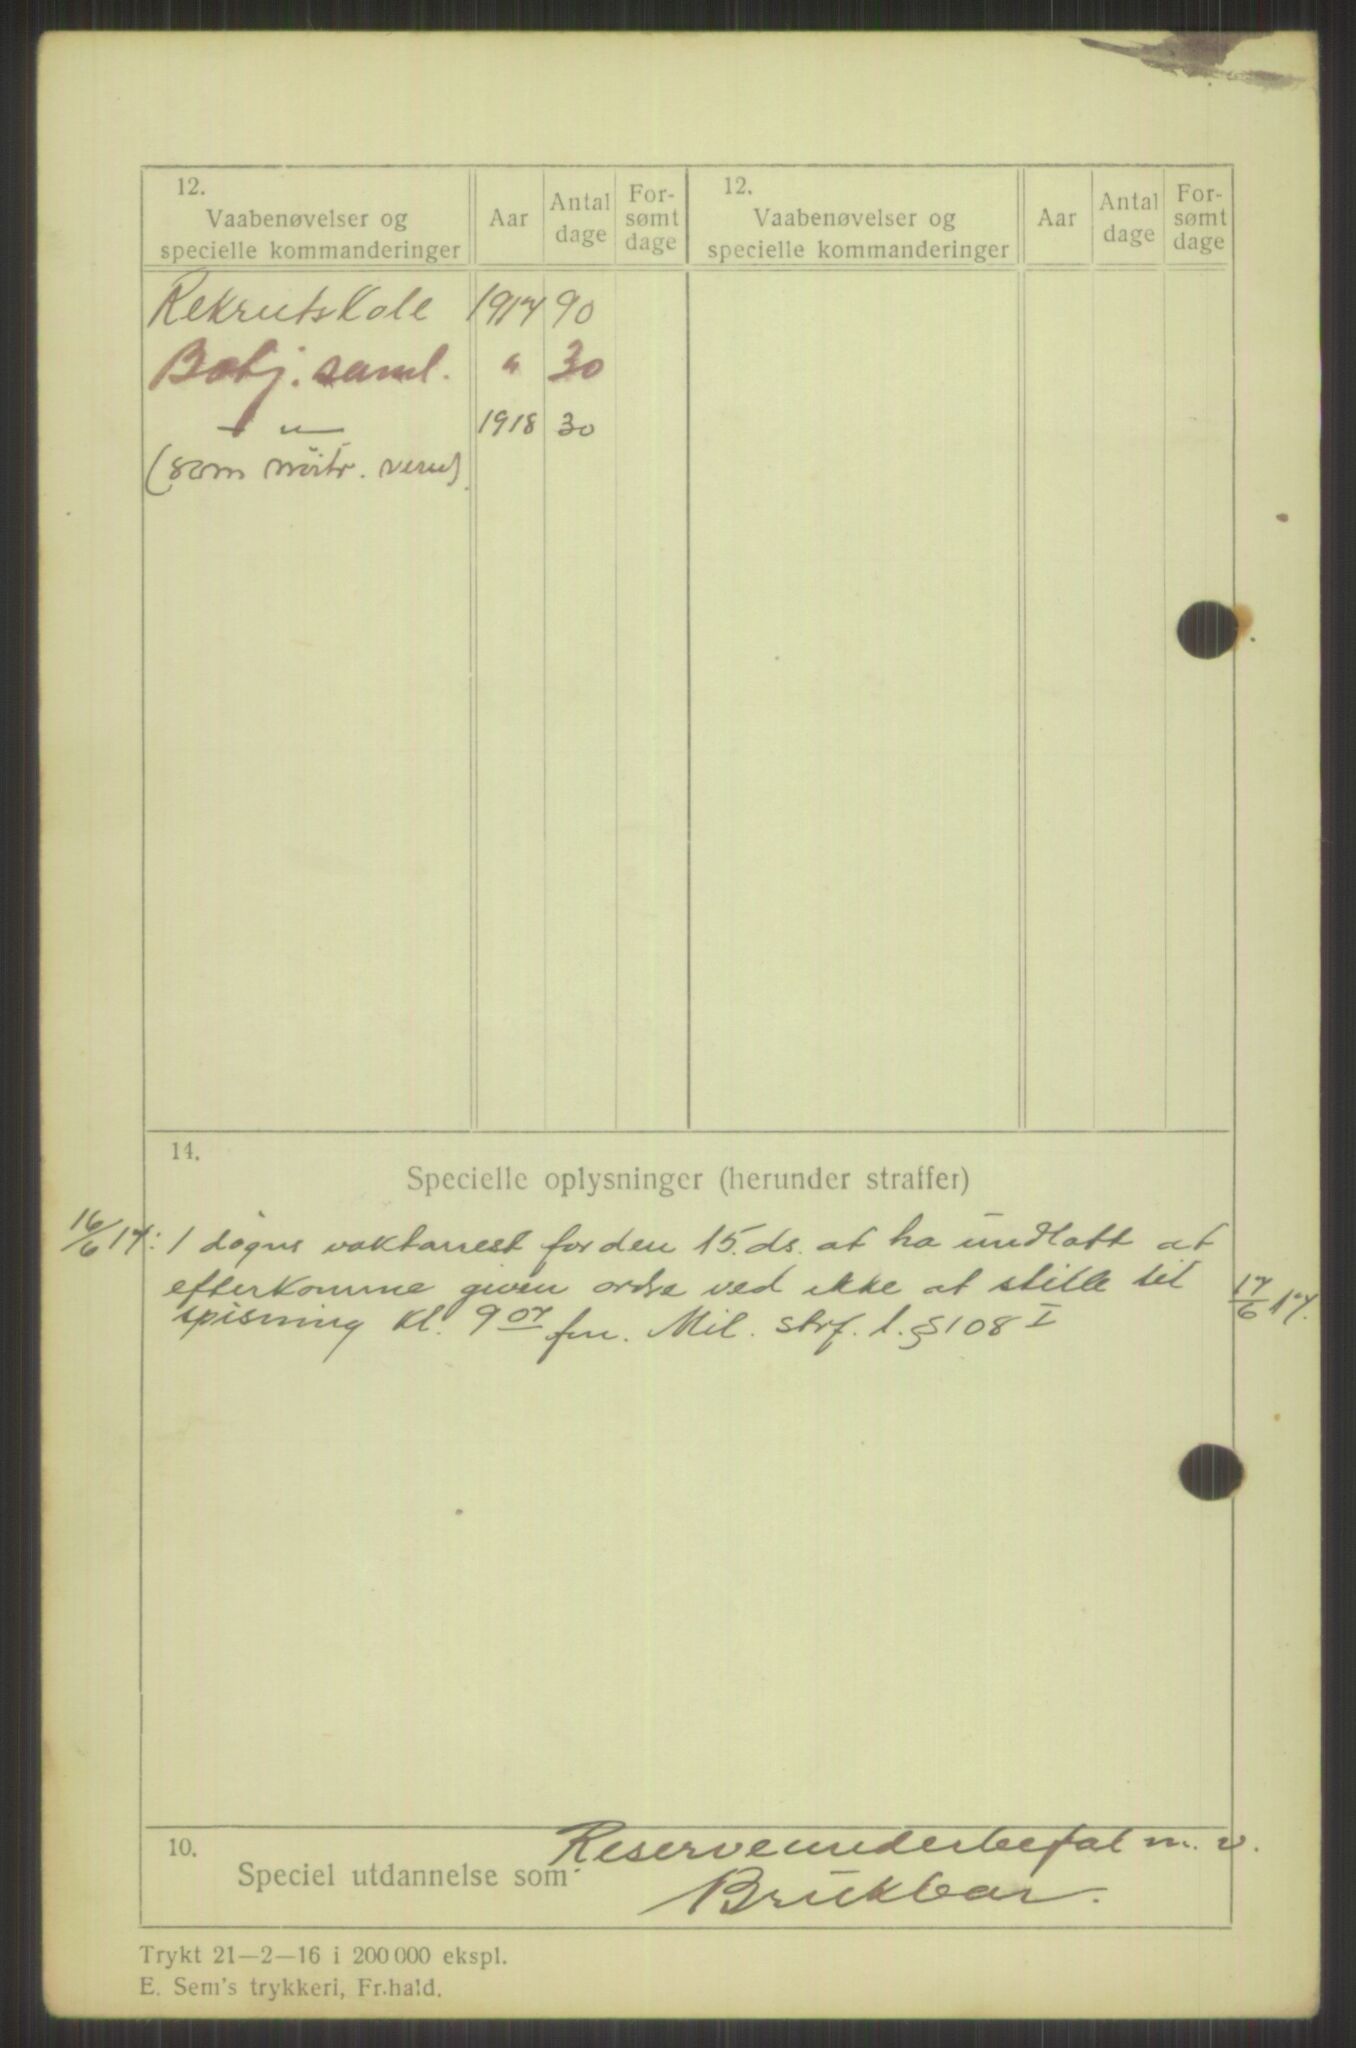 12.
Vaabenøvelser og
specielle kommanderinger
Aar
Antal
dage
For-
sømt
dage
12.
Vaabenøvelser og
specielle kommanderinger
Aar
Antal
dage
For-
sømt
dage
Rekrutskole 1917 90
saml. " 30
— " — 1918 30
(som
14.
Specielle oplysninger (herunder straffer)
16/6 17: 1 døgns vaktarrest for den 15. ds. at ha undlatt at
efterkomme given ordre ved ikke at stille til 17/6 17.
spisning kl. 9 07 fm. Mil. strf. l. § 108 I
10.
Speciel utdannelse som Reserveunderbefal m. v.
Brukbar.
Trykt 21—2—16 i 200 000 ekspl.
E. Sem's trykkeri, Fr.hald.